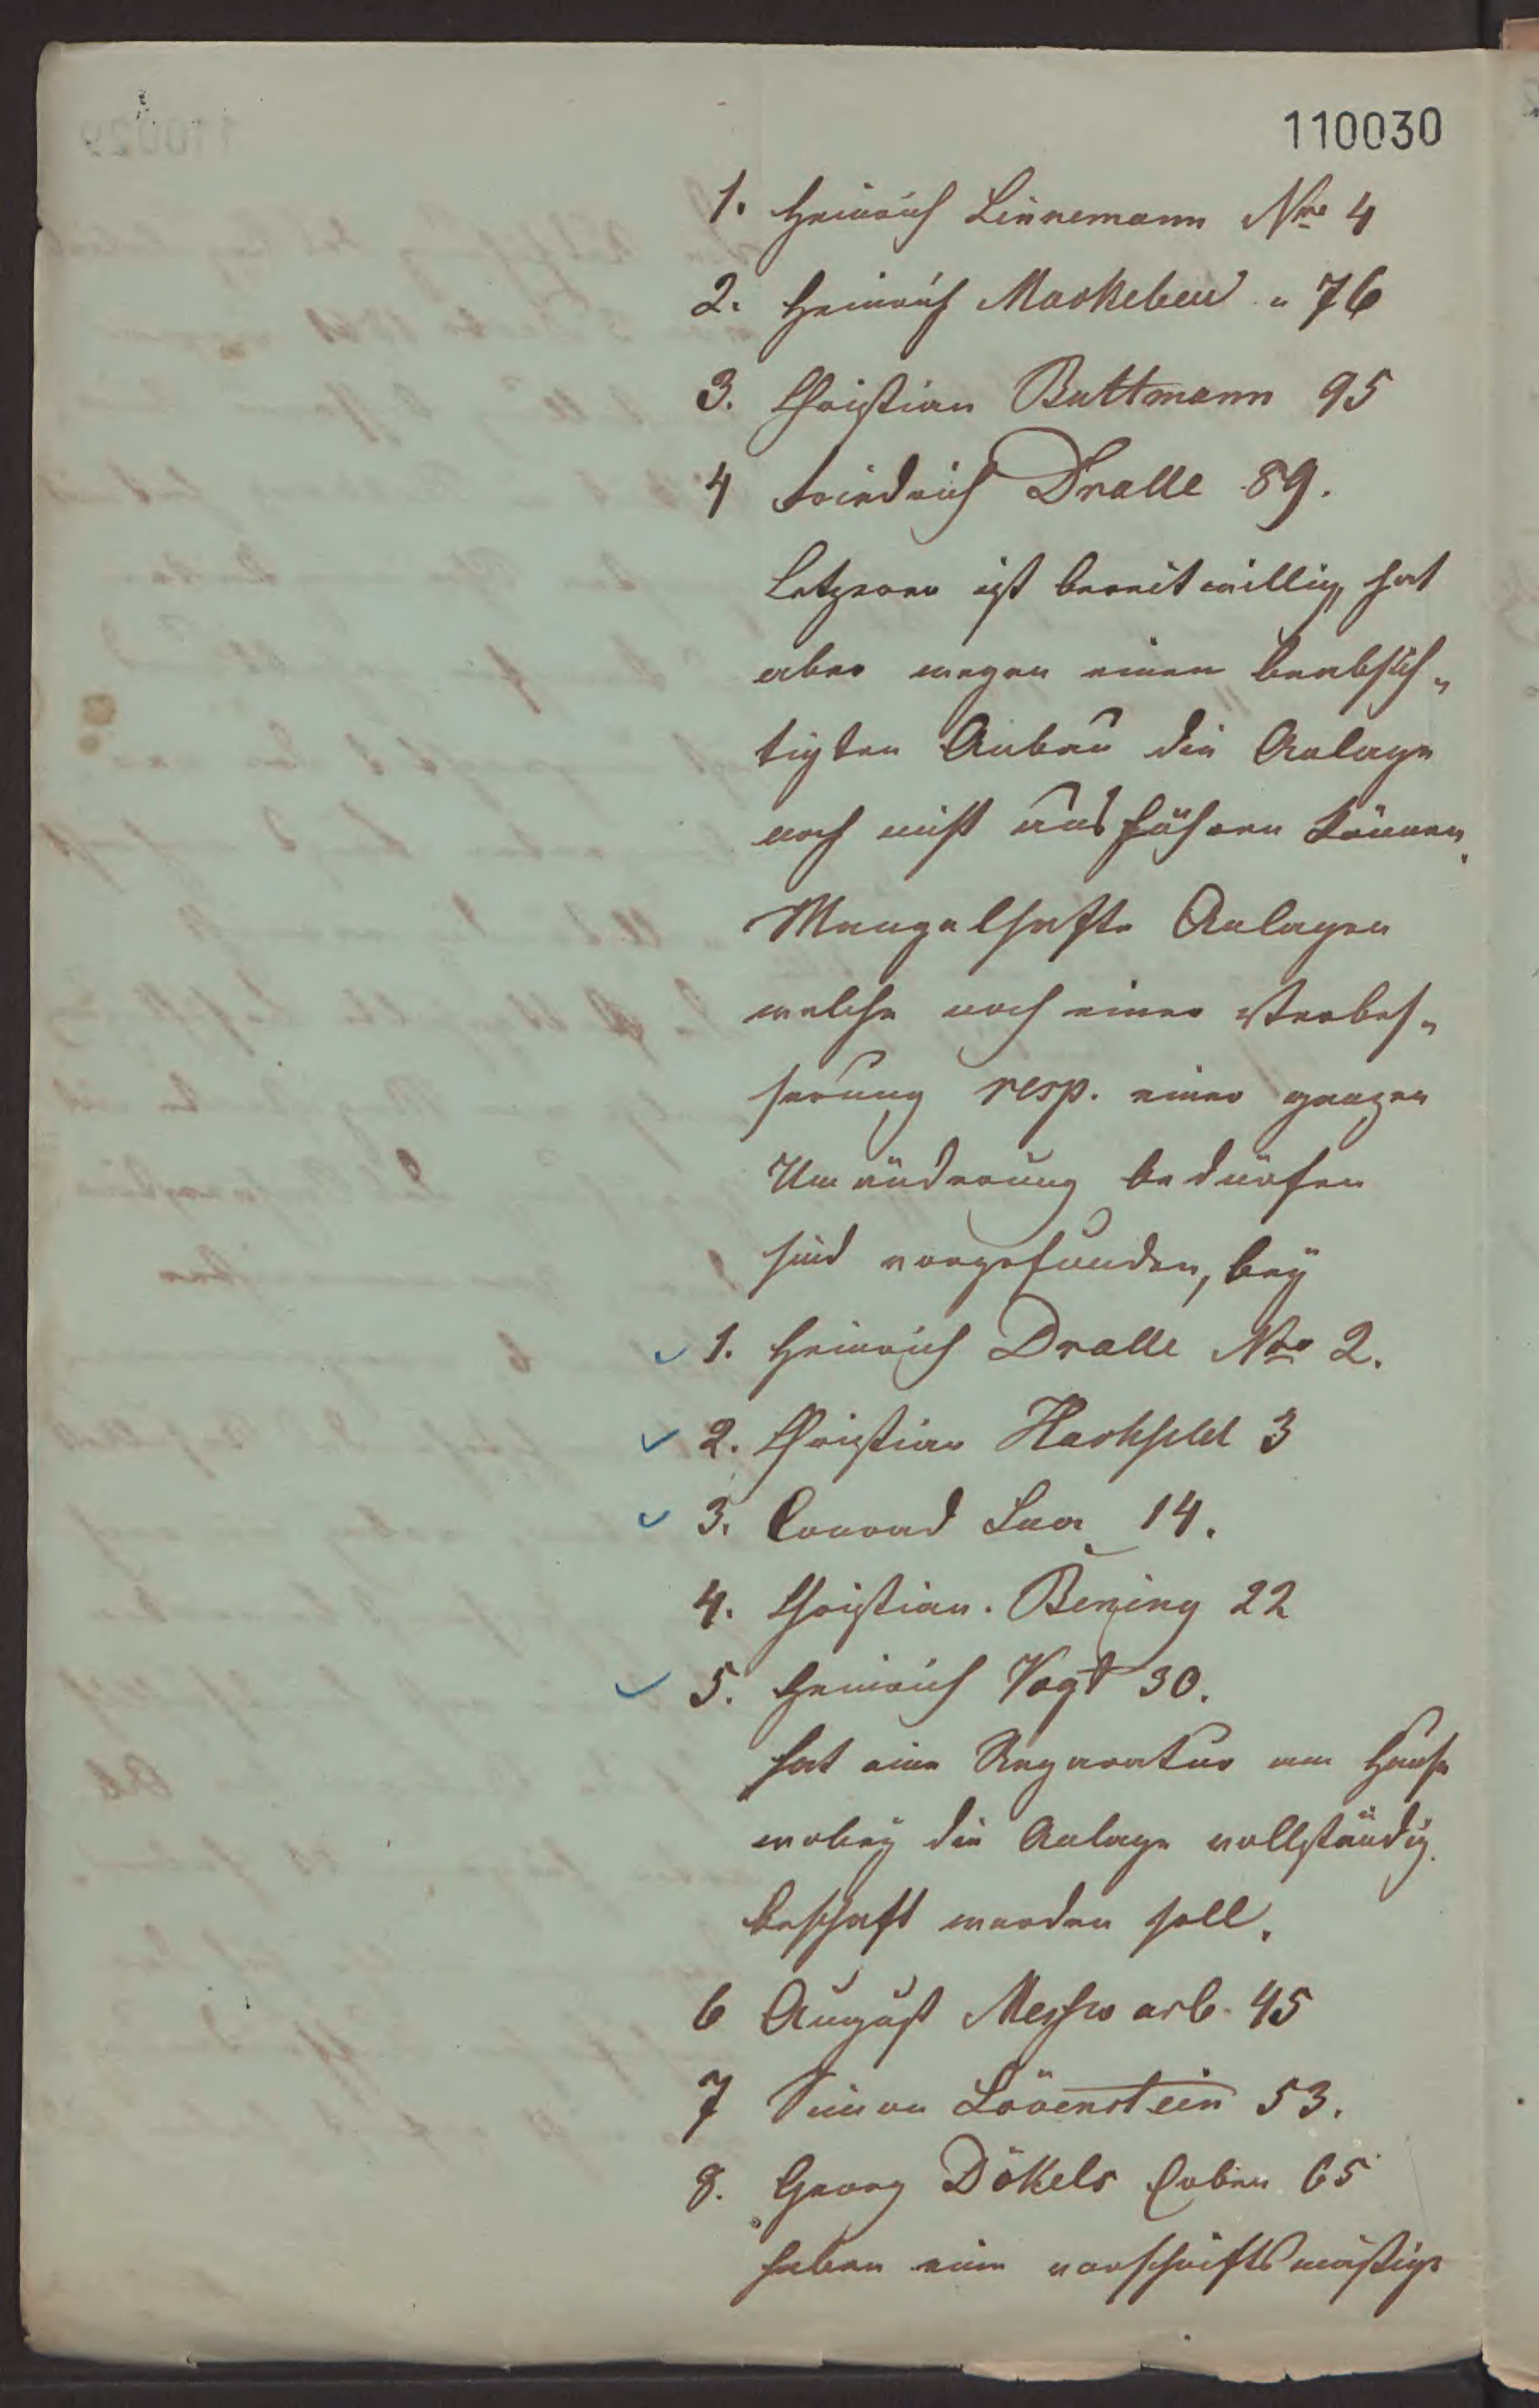 110030
1. Heinrich Linnemann Nro 4
2. Heinrich Mackeben " 76
3. Christian Buttmann 95
4 Friedrich Dralle 89.
Letzerer ist bereitwillig, hat
aber wegen einen beabsich-
tigten Anbau die Anlage
noch nicht ausführen können.
Mangelhafte Anlagen
welche noch einer Verbes-
serung resp. einer ganzen
Umänderung bedürfen
sind vorgefunden, bey
1. Heinrich Dralle Nro 2.
2. Christian Harhfeld 3
3. Conrad 14.
4. Christian. Bening 22
5. Heinrich Vogt 30.
hat eine Reparatur am Hause
wobey die Anlage vollständig
beschaft werden soll.
6 August Messw arb. 45
7 Simon Lövenstein 53.
8. Georg Dökels 65
haben eine vorschriftsmäßige